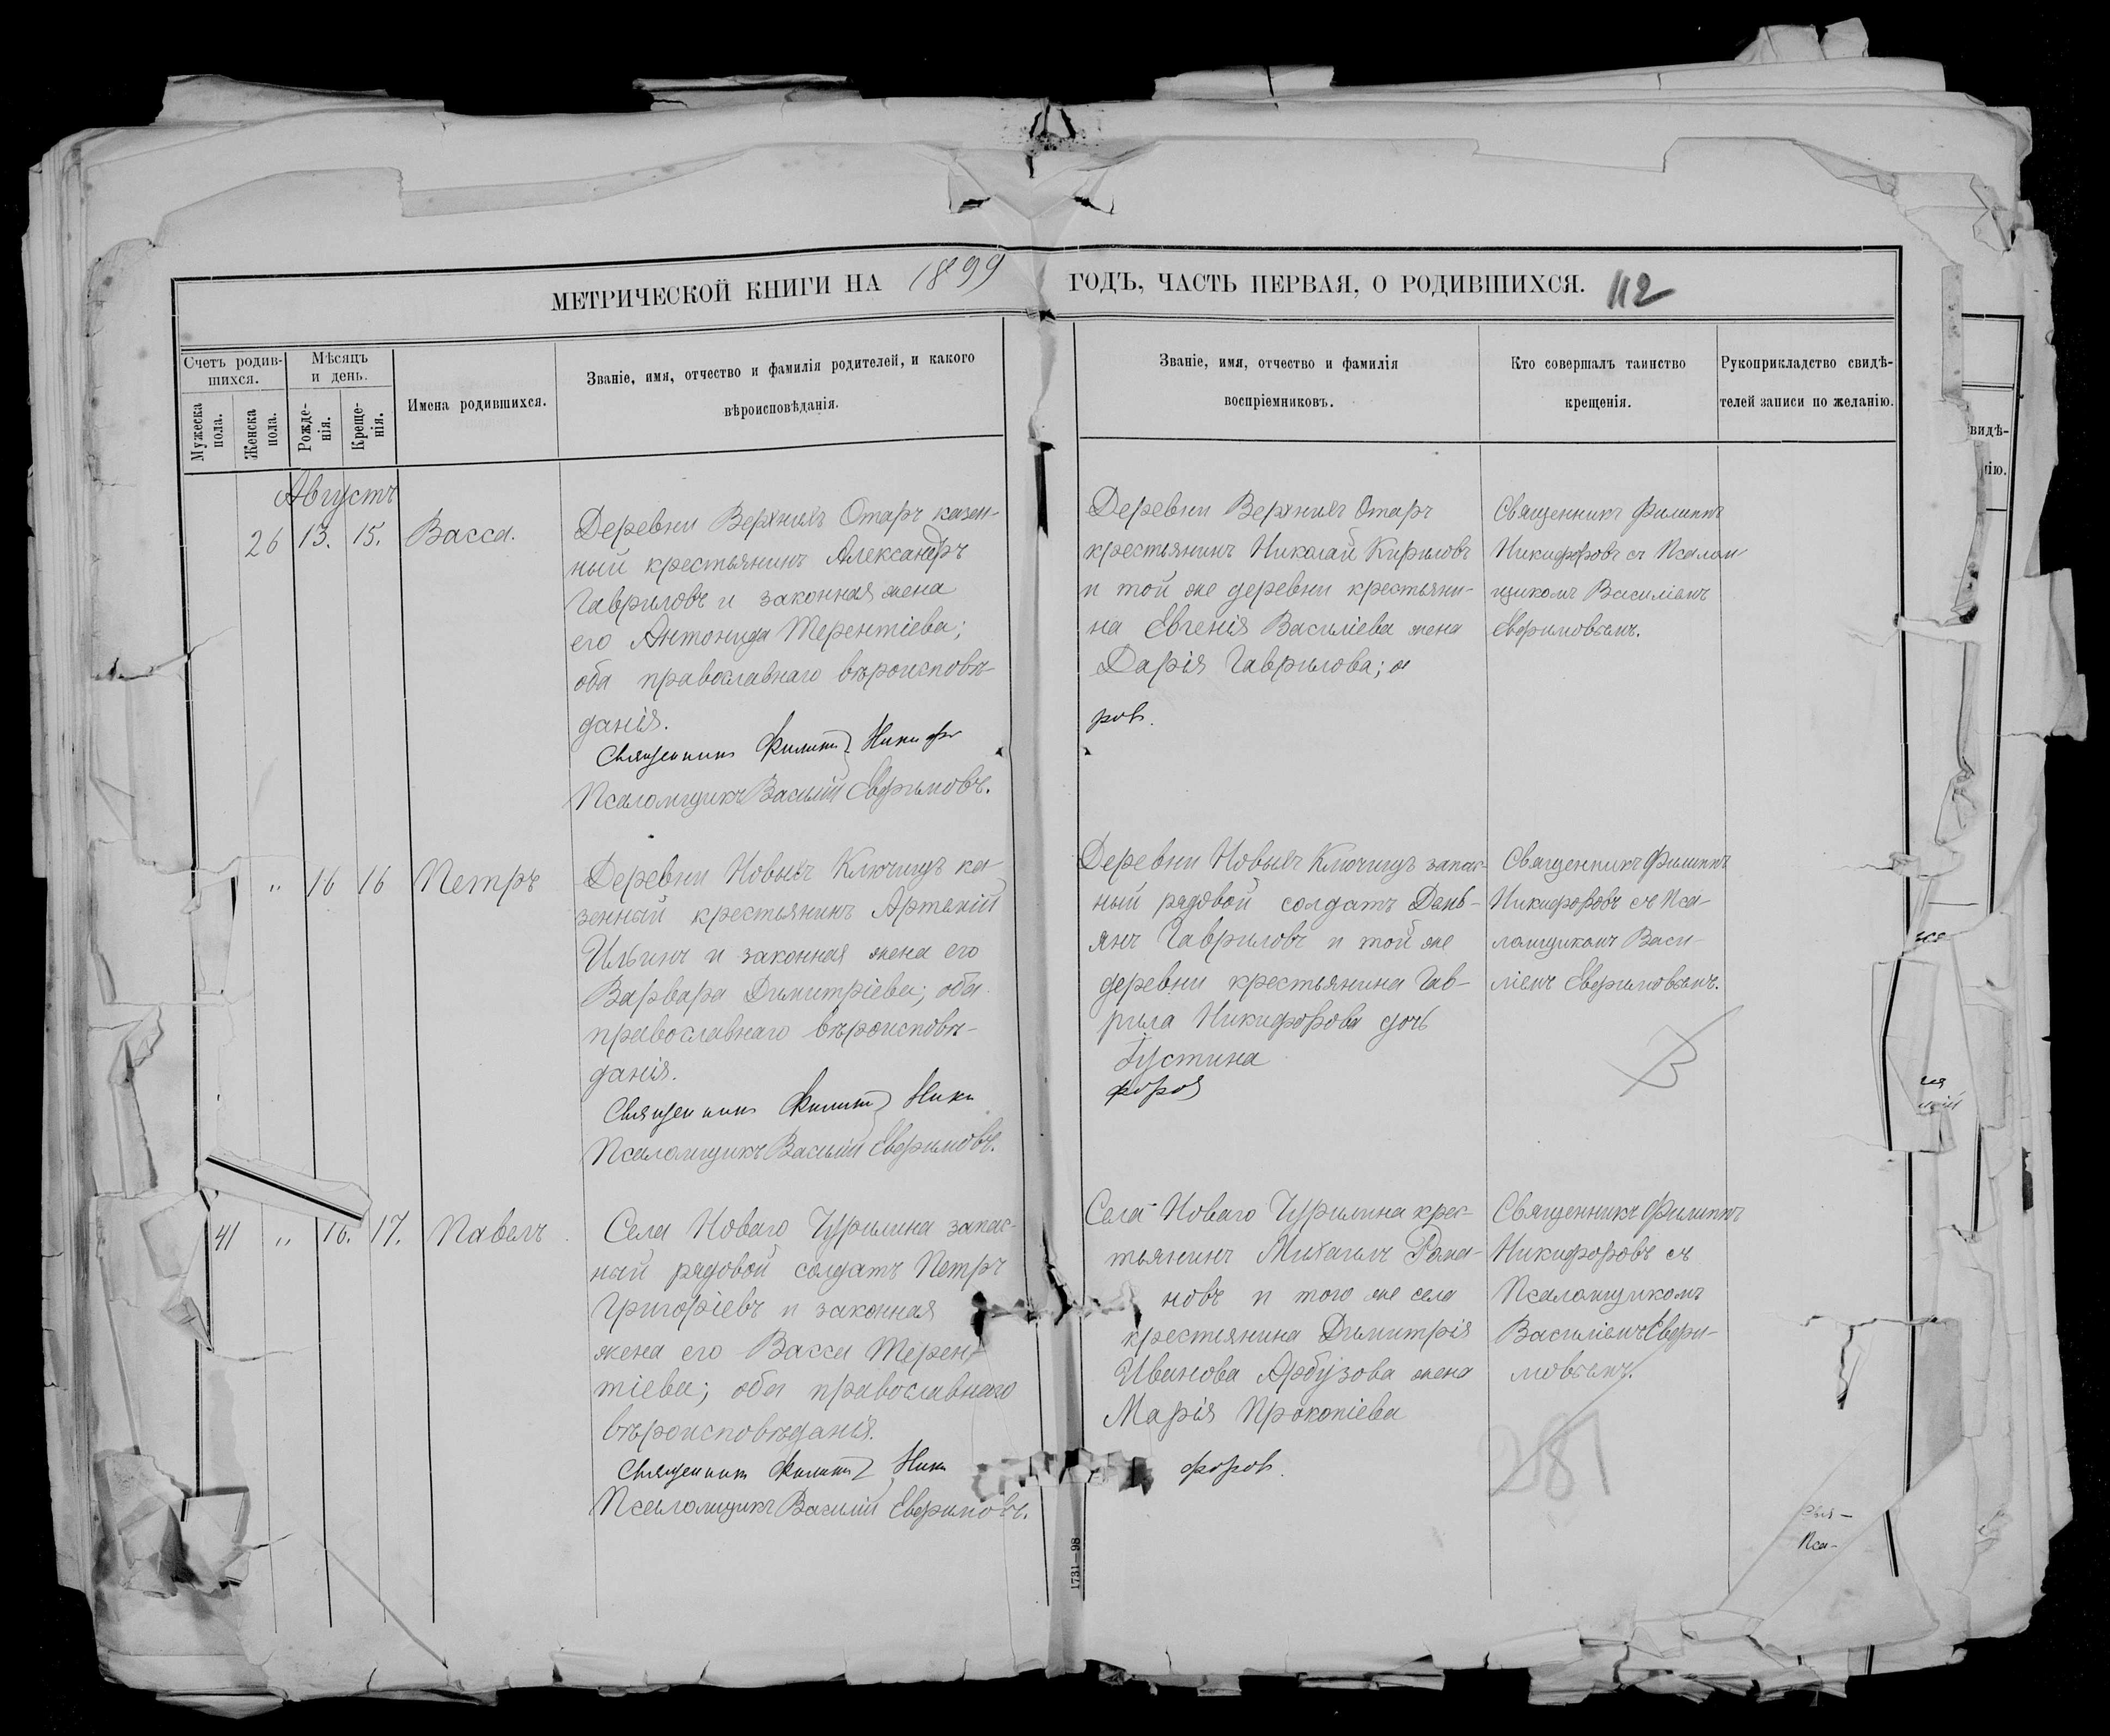 МЕТРИЧЕСКОЙ КНИГИ НА 1899 ГОДЪ, ЧАСТЬ ПЕРВАЯ, О РОДИВШИХСЯ. 112
Счетъ родив-
шихся.
Мужеска
пола.
Женска
пола.
Мѣсяцъ
и день.
Рожде-
нія.
Креще-
нія.
Имена родившихся.
Званіе, имя, отчество и фамилія родителей, и какого
вѣроисповѣданія.
Званіе, имя, отчество и фамилія
воспріемниковъ.
Кто совершалъ таинство
крещенія.
Рукоприкладство свидѣ-
телей записи по желанію.
Августъ
26 13. 15. Васса.
Деревни Верхнихъ Отаръ казен-
ный крестьянинъ Александръ
Гавриловъ и законная жена
его Антонида Терентіева;
оба православнаго вѣроисповѣ-
данія.
Священникъ Филиппъ Никифо
Псаломщикъ Василій Евфимовъ.
Деревни Верхнихъ Отаръ
крестьянинъ Николай Кириловъ
и той же деревни крестьяни-
на Евгенія Василіева жена
Дарія Гаврилова;
ровъ.
Священникъ Филиппъ
Никифоровъ съ Псалом-
щикомъ Василіемъ
Евфимовымъ.
" 16 16 Петръ
Деревни Новыхъ Ключищъ ка-
зенный крестьянинъ Артемій
Ильинъ и законная жена его
Варвара Димитріева; оба
православнаго вѣроисповѣ-
данія.
Священникъ Филиппъ Ники
Псаломщикъ Василій Евфимовъ.
Деревни Новыхъ Ключищъ запас-
ный рядовой солдатъ Дань-
янъ Гавриловъ и той же
деревни крестьянина Гав-
рила Никифорова дочь
Іустина
форовъ
Священникъ Филиппъ
Никифоровъ съ Пса-
ломщикомъ Васи-
ліемъ Евфимовымъ.
41 " 16. 17. Павелъ
Села Новаго Чурилина запас-
ный рядовой солдатъ Петръ
Григоріевъ и законная
жена его Васса Терен-
тіева; оба православнаго
вѣроисповѣданія.
Священникъ Филиппъ Ники
Псаломщикъ Василій Евфимовъ.
Села Новаго Чурилина крес-
тьянинъ Михаилъ Рома-
новъ и того же села
крестьянина Димитрія
Иванова Арбузова жена
Марія Прокопіева
форовъ.
Священникъ Филиппъ
Никифоровъ съ
Псаломщикомъ
Василіемъ Евфи-
мовымъ.
281
Свя-
Пса-
1731—98
видѣ-
нію.